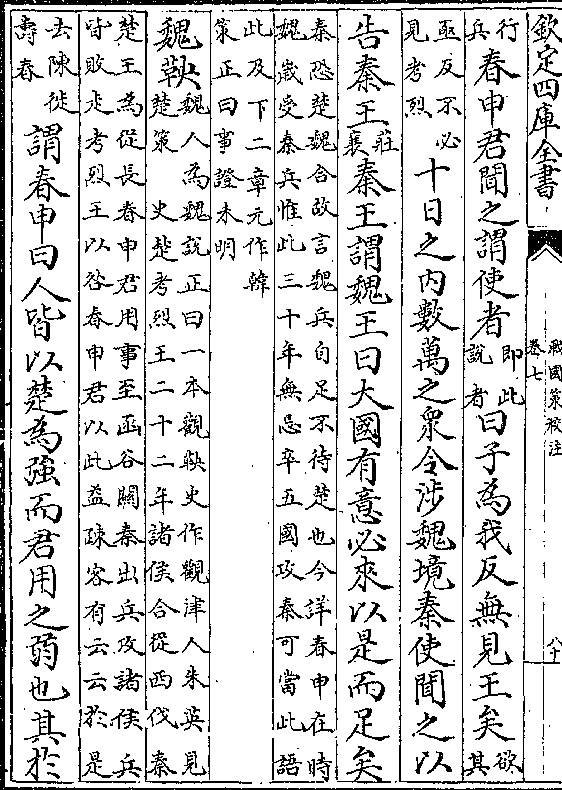 欽定四庫全書
戰國策校注
卷七
八十
行兵春申君聞之謂使者即此説者曰子為我反無見王矣欲其
亟反不必見考烈十日之内數萬之衆今涉魏境秦使聞之以
告秦王莊襄秦王謂魏王曰大國有意必來以是而足矣
秦恐楚魏合故言魏兵自足不待楚也今詳春申在時
魏歲受秦兵惟此三十年無忌卒五國攻秦可當此語
此及下二章元作韓
策正曰事證未明
魏鞅魏人為魏説正曰一本觀鞅史作觀津人朱英見
楚策 史楚考烈王二十二年諸侯合從西伐秦
楚王為從長春申君用事至函谷關秦出兵攻諸侯兵
皆敗走考烈王以咎春申君以此益疎客有云云於是
去陳徙壽春謂春申曰人皆以楚為強而君用之弱也其於